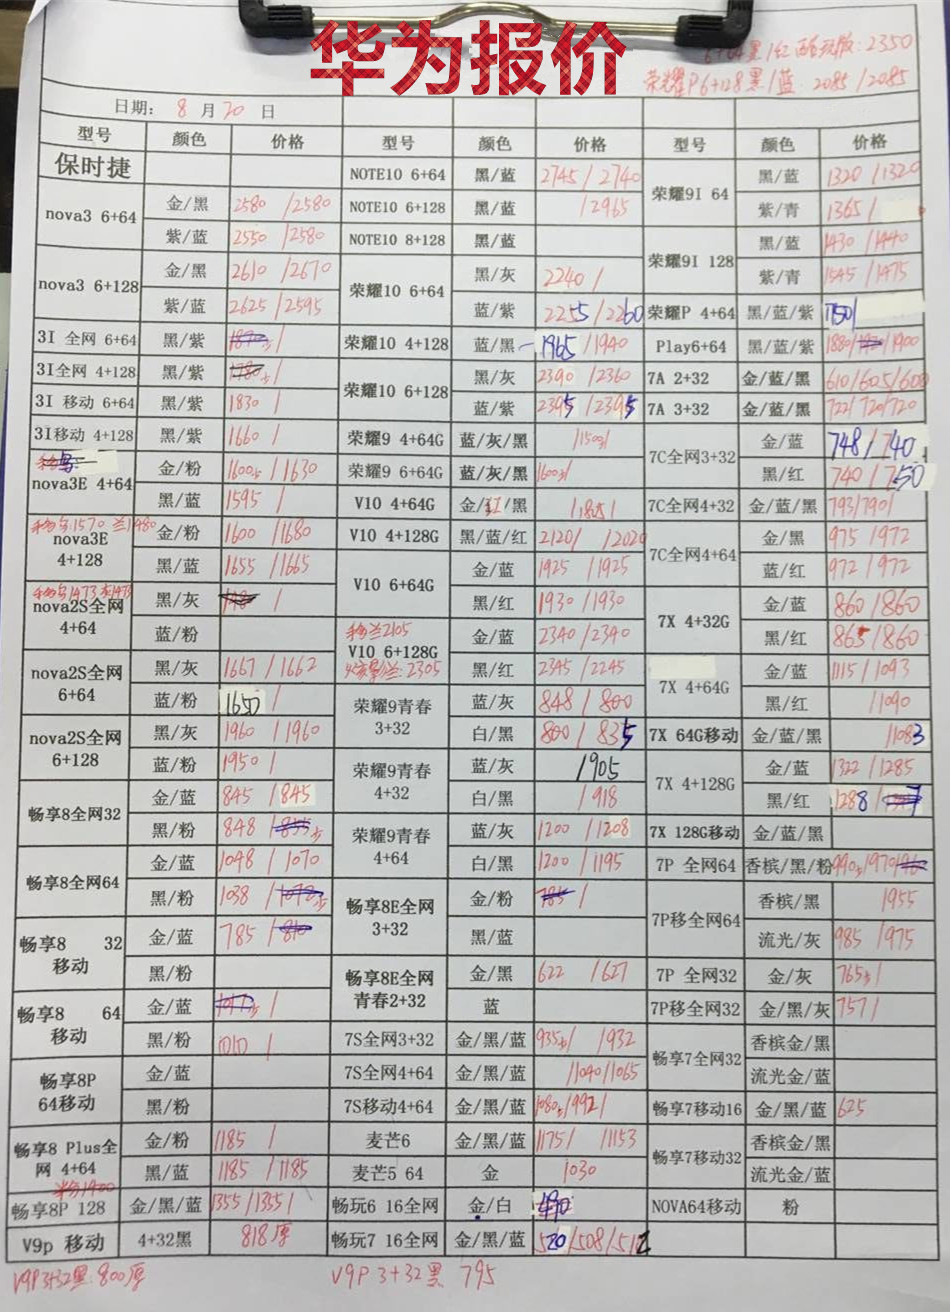 华为报价
荣耀P6+128黑/蓝: 2085/2085
日期: 8 月 20 日
型号 颜色 价格 型号 颜色 价格 型号 颜色 价格
保时捷
nova3 6+64 金/黑 2580 /2580
紫/蓝 2550 /2580
nova3 6+128 金/黑 2610 /2670
紫/蓝 2625 /2595
3I 全网 6+64 黑/紫
3I全网 4+128 黑/紫
3I 移动 6+64 黑/紫 1830 /
3I移动 4+128 黑/紫 1660 /
nova3E 4+64 金/粉 1600 /1630
黑/蓝 1595 /
nova3E 4+128 金/粉 1600 /1680
黑/蓝 1655 /1665
nova2S全网 4+64 黑/灰
蓝/粉
nova2S全网 6+64 黑/灰 1667 /1662
蓝/粉 1650 /
nova2S全网 6+128 黑/灰 1960 /1960
蓝/粉 1950 /
畅享8全网32 金/蓝 845 /845
黑/粉 848 /
畅享8全网64 金/蓝 1048 /1070
黑/粉 1038 /
畅享8 32 移动 金/蓝 785 /
黑/粉
畅享8 64 移动 金/蓝
黑/粉 1010 /
畅享8P 64移动 金/蓝
黑/粉
畅享8 Plus全网 4+64 金/粉 1185 /
黑/蓝 1185 /1185
畅享8P 128 金/黑/蓝 1355 /1355/
V9p 移动 4+32黑 818厚
V9P3+32黑:800厚
NOTE10 6+64 黑/蓝 2745 / 2740
NOTE10 6+128 黑/蓝 /2965
NOTE10 8+128 黑/蓝
荣耀10 6+64 黑/灰 2240 /
蓝/紫 2255 /2260
荣耀10 4+128 蓝/黑 1965 /1940
荣耀10 6+128 黑/灰 2390 /2360
蓝/紫 2395 /2395
荣耀9 4+64G 蓝/灰/黑
荣耀9 6+64G 蓝/灰/黑
V10 4+64G 金/红/黑
V10 4+128G 黑/蓝/红 2120/ /2020
V10 6+64G 金/蓝 1925 /1925
黑/红 1930 /1930
V10 6+128G 金/蓝 2340 /2340
黑/红 2345 /2245
荣耀9青春 3+32 蓝/灰 848 / 800
白/黑 800 / 835
荣耀9青春 4+32 蓝/灰 /905
白/黑 /918
荣耀9青春 4+64 蓝/灰 1200 /1208
白/黑 1200 /1195
畅享8E全网 3+32 金/粉
黑/蓝
畅享8E全网 青春2+32 金/黑 622 /627
蓝
7S全网3+32 金/黑/蓝
7S全网4+64 金/黑/蓝 /1040/1065
7S移动4+64 金/黑/蓝
麦芒6 金/黑/蓝 1175/ /1153
麦芒5 64 金 1030
畅玩6 16全网 金/白 490
畅玩7 16全网 金/黑/蓝 520/508/512
V9P 3+32黑 795
荣耀9I 64 黑/蓝 1320 /1320
紫/青 1365 /
荣耀9I 128 黑/蓝 1430 /1440
紫/青 1545 /1475
荣耀P 4+64 黑/蓝/紫 1750/
Play6+64 黑/蓝/紫
7A 2+32 金/蓝/黑 610/605/600
7A 3+32 金/蓝/黑 722/720/720
7C全网3+32 金/蓝 748/740
黑/红 740 /750
7C全网4+32 金/蓝/黑 793/790/
7C全网4+64 金/黑 975 /972
蓝/红 972 /972
7X 4+32G 金/蓝 860 /860
黑/红 865 /860
7X 4+64G 金/蓝 1115 /1093
黑/红 /1090
7X 64G移动 金/蓝/黑 /1083
7X 4+128G 金/蓝 1322 /1285
黑/红 1288 /
7X 128G移动 金/蓝/黑
7P 全网64 香槟/黑/粉
7P移全网64 香槟/黑 /955
流光/灰 985 /975
7P 全网32 金/灰
7P移全网32 金/黑/灰 757/
畅享7全网32 香槟金/黑
流光金/蓝
畅享7移动16 金/黑/蓝 625
畅享7移动32 香槟金/黑
流光金/蓝
NOVA64移动 粉